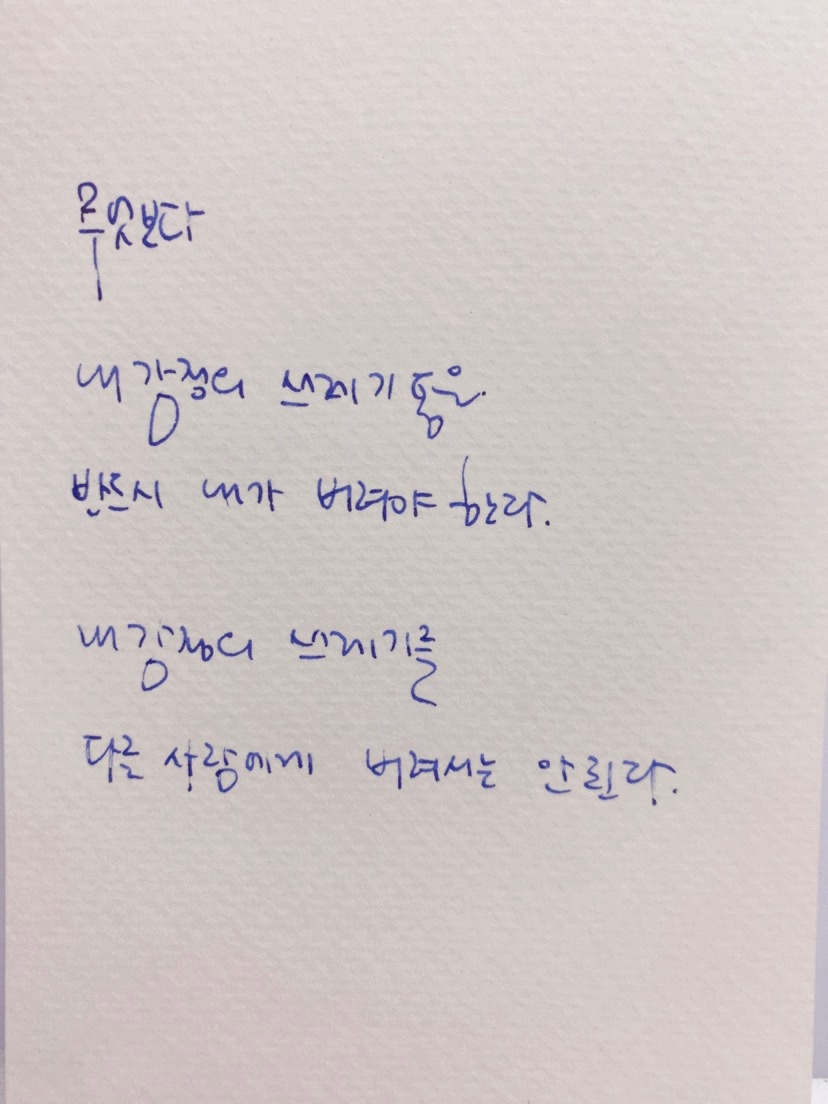 무엇보다
내 감정의 쓰레기통은
반드시 내가 버려야 한다.
내 감정의 쓰레기를
다른 사람에게 버려서는 안된다.